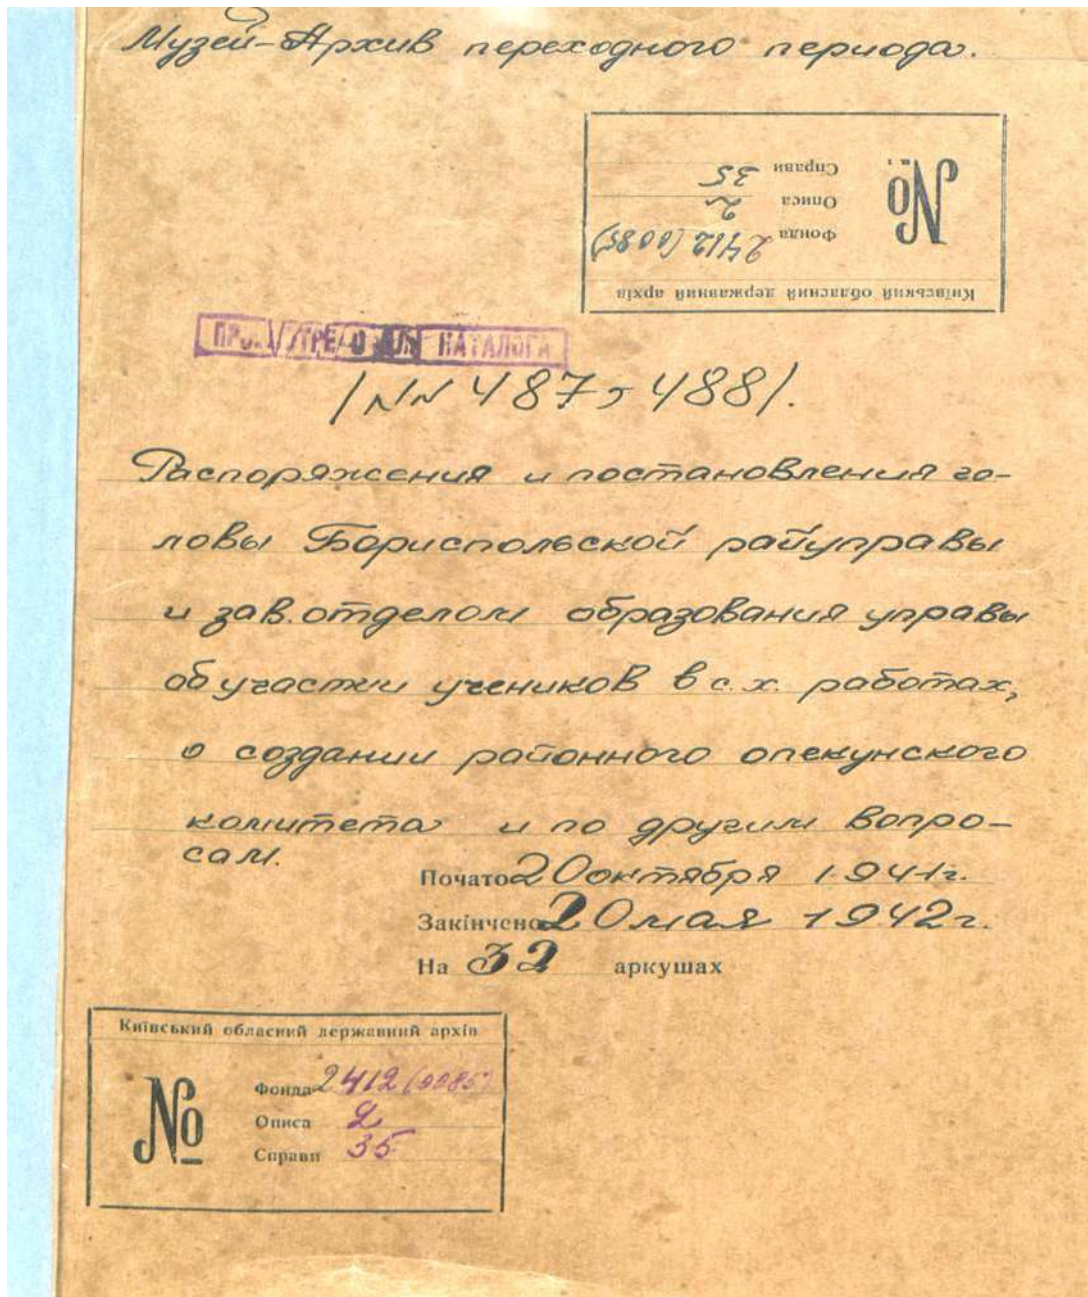 Музей-Архив переходного периода.
Київський обласний державний архів
№
Фонда 2412 (0085)
Описа 2
Справи 35
КАТАЛОГА
/NN 487, 488/.
Распоряжения и постановления го-
ловы Бориспольской райуправы
и зав. отделом образования управы
об участии учеников в с.х. работах,
о создании районного опекунского
комитета и по другим вопро-
сам.
Початo 20 октября 1941г.
Закінчено 20 мая 1942г.
На 32 аркушах
Київський обласний державний архів
№
Фонда 2412 (0085)
Описа 2
Справи 35